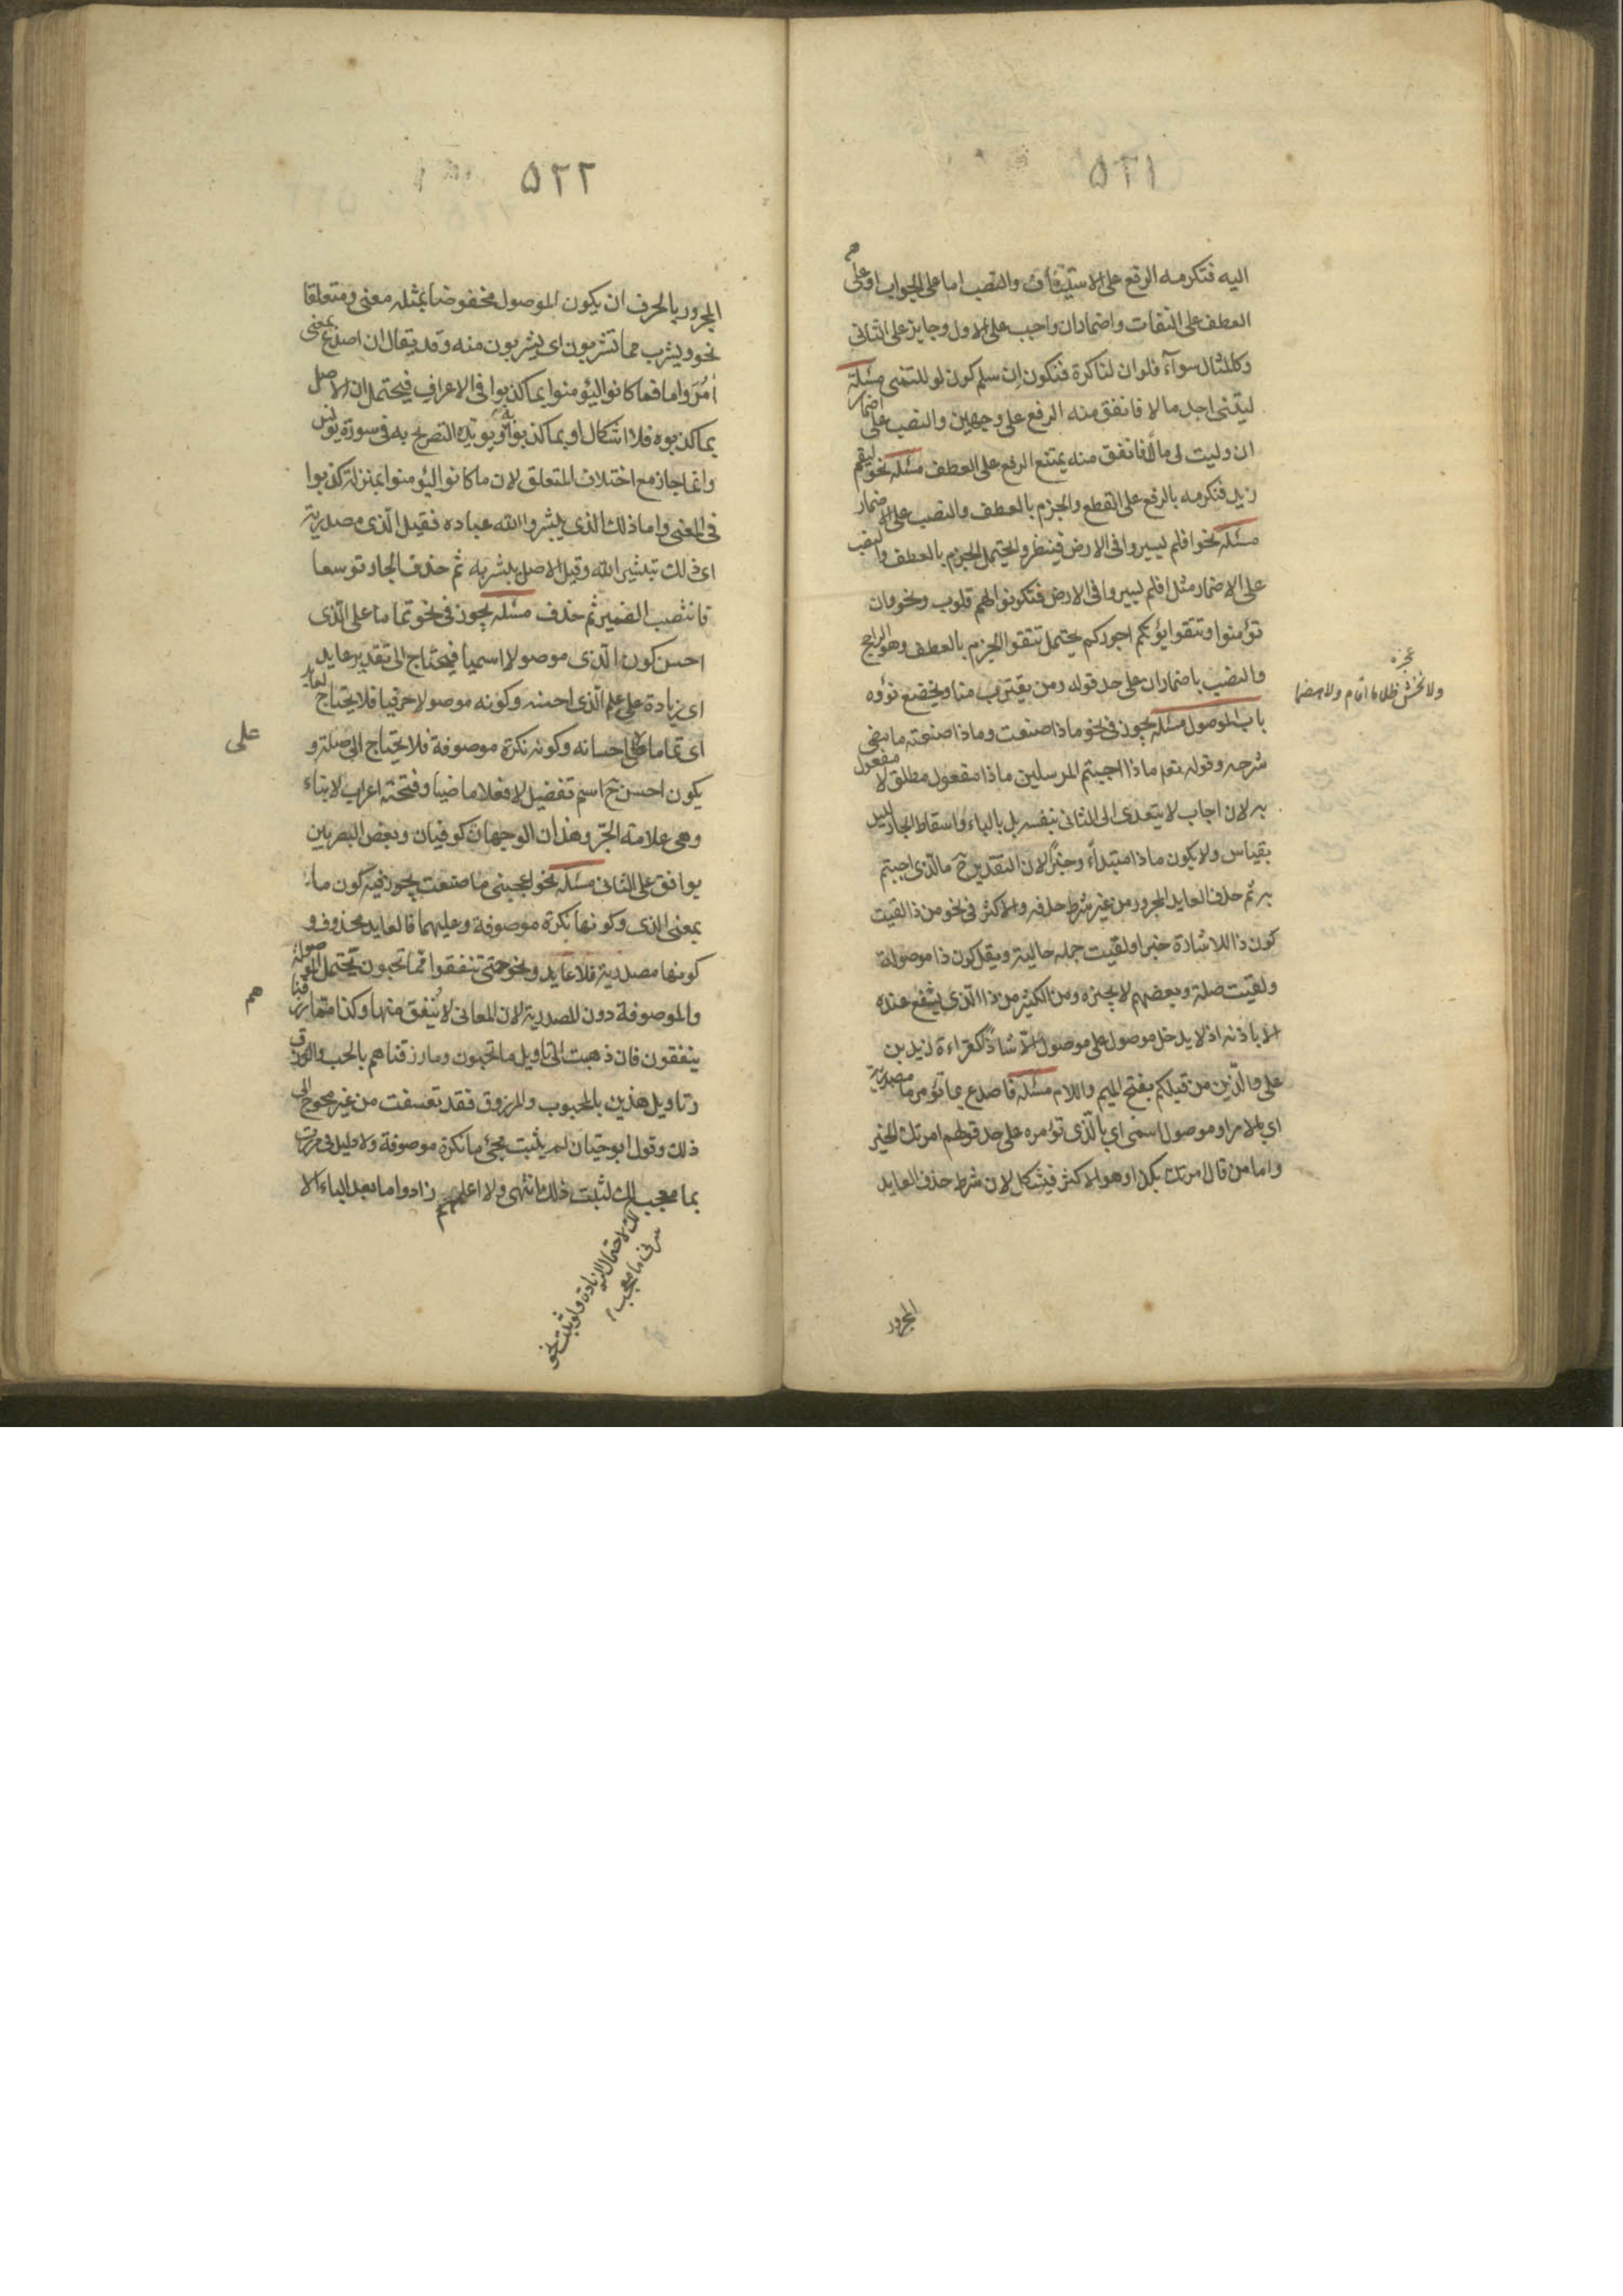 ٥٢١
اليه فتكرمه الرفع على الاستيناف والنصب اما على الجواب او على
العطف على التفات واضماران واجب على الاول وجايز على الثانى
وكالمثال سوآء فلو ان لنا كرة فنكون ان سلم كون لو للتمنى مسئلة
ليتنى اجد مالا فانفق منه الرفع على وجهين والنصب على اضمار
ان وليت لى مالا فانفق منه يمتنع الرفع على العطف مسئله نحو ليقم
زيد فنكرمه بالرفع على القطع والجزم بالعطف والنصب على الاضمار
مسئله نحو افلم يسيروا فى الارض فينظروا يحتمل الجزم بالعطف والنصب
على الاضمار مثل افلم يسيروا فى الارض فتكون لهم قلوب ونحو وان
تؤمنوا وتتقوا يؤتكم اجوركم يحتمل تتقوا الجزم بالعطف وهو الراجح
والنصب باضماران على حد قوله ومن يقترب منا ويخضع نؤوه
باب الموصول مسئله يجوز فى نحو ماذا صنعت وماذا صنعته ما مضى
شرحه وقوله تعم ماذا اجبتم المرسلين ماذا مفعول مطلق لا مفعول
به لان اجاب لا يتعدى الى الثانى بنفسه بل بالباء واسقاط الجار ليس
بقياس ولا يكون ماذا مبتدأء وخبرًا لان التقدير ح ما الذى اجبتم
به ثم حذف العايد المجرور من غير شرط حذفه والاكثر فى نحو من ذا لقيت
كون ذا للاشارة خبرا ولقيت جمله حالية ويقل كون ذا موصولة
ولقيت صلة وبعضهم لا يجيزه ومن الكثير من ذا الذى يشفع عنده
الا باذنه اذ لا يدخل موصول على موصول الا شاذا كقراءة زيد بن
على والذين من قبلكم بفتح الميم واللام مسئله فاصدع بما تؤمر ما مصدرية
اى بالامر او موصول اسمى اى بالذى تؤمره على حد قولهم امرتك الخير
واما من قال امرتك بكذا وهو الاكثر فيشكل لان شرط حذف العايد
المجرور
ولا يخش ظلما ما اقام ولا هضما
٥٢٢
المجرور بالحرف ان يكون الموصول مخفوضا بمثله معنى ومتعلقا
نحو ويشرب مما تشربون اى يشربون منه وقد يقال ان اصدع بمعنى
اُمُرْ واما فما كانوا ليؤمنوا بما كذبوا فى الاعراف فيحتمل ان الاصل
بما كذبوه فلا اشكال او بما كذبوا به ويؤيده التصريح به فى سورة يونس
وانما جاز مع اختلاف المتعلق لان ما كانوا ليؤمنوا بمنزلة كذبوا
فى المعنى واما ذلك الذى يبشر الله عباده فقيل الذى مصدرية
اى ذلك تبشير الله وقيل الاصل يبشر به ثم حذف الجار توسعا
فانتصب الضمير ثم حذف مسئله يجوز فى نحو تماما على الذى
احسن كون الذى موصولا اسميا فيحتاج الى تقدير عايد
اى زيادة على علم الذى احسنه وكونه موصولا حرفيا فلا يحتاج لعايد
اى تماما على احسانه وكونه نكرة موصوفة فلا يحتاج الى صلة و
على
يكون احسن ح اسم تفضيل لا فعلا ماضيا وفتحته اعراب لا بناء
وهى علامة الجر وهذان الوجهان كوفيان وبعض البصريين
يوافق على الثانى مسئله نحو اعجبنى ما صنعت يجوز فيه كون ما
بمعنى الذى وكونها نكرة موصوفة وعليهما فالعايد محذوف و
كونها مصدرية فلا عايد ونحو حتى تنفقوا مما تحبون تحتمل الموصولة
والموصوفة دون المصدرية لان المعانى لا ينفق منها وكذا مما رزقنا
هم
ينفقون فان ذهبت الى تاويل ما تحبون وما رزقناهم بالحب والرزق
وتاويل هذين بالمحبوب والمرزوق فقد تعسفت من غير محوج الى
ذلك وقول ابو حيان لم يثبت مجئ ما نكرة موصوفة ولا دليل فى مررت
بما معجب لك لثبت ذلك انتهى ولا اعلمهم زادوا ما بعد الباء الا
لك لاحتمال الزيادة ولو ثبت نحو
سرنى ما معجب